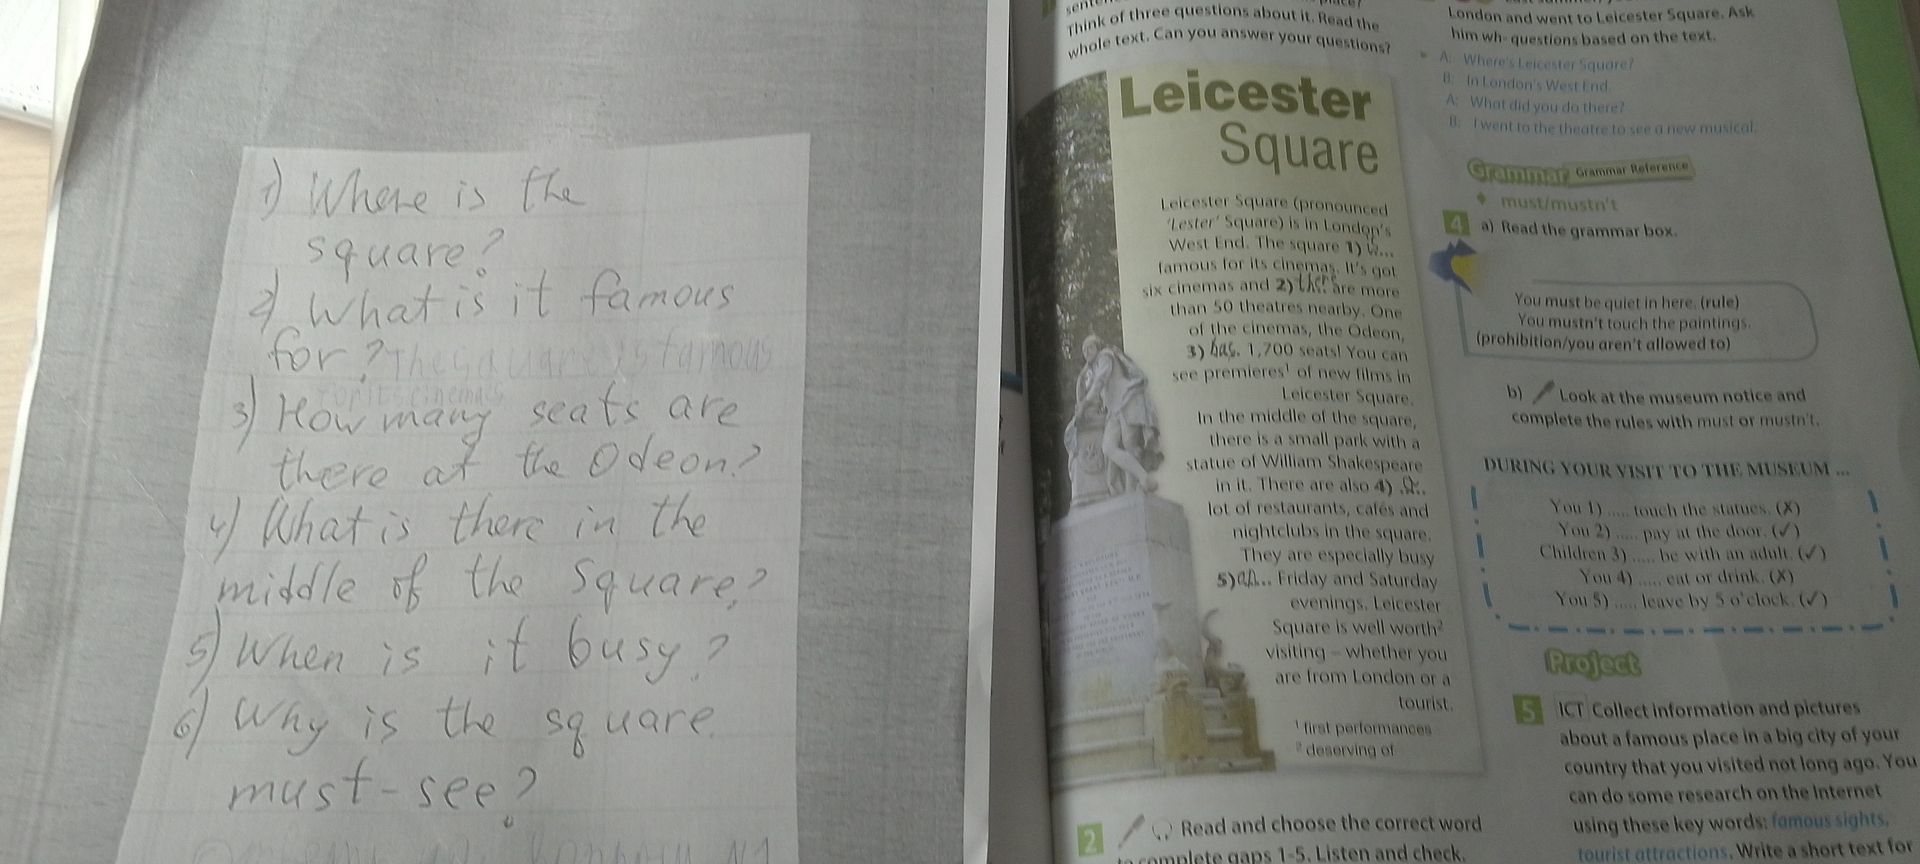 1) Where is the
square?
2) What is it famous
for? The square is famous
for its cinemas
3) How many seats are
there at the Odeon?
4) What is there in the
middle of the Square?
5) When is it busy?
6) Why is the square
must-see?
place?
Think of three questions about it. Read the
whole text. Can you answer your questions?
Leicester
Square
Leicester Square (pronounced
'Lester' Square) is in London's
West End. The square 1) is...
famous for its cinemas. It's got
six cinemas and 2) there are more
than 50 theatres nearby. One
of the cinemas, the Odeon,
3) has. 1,700 seats! You can
see premieres¹ of new films in
Leicester Square.
In the middle of the square,
there is a small park with a
statue of William Shakespeare
in it. There are also 4) .a..
lot of restaurants, cafés and
nightclubs in the square.
They are especially busy
5) on... Friday and Saturday
evenings. Leicester
Square is well worth²
visiting – whether you
are from London or a
tourist.
¹ first performances
² deserving of
2 Read and choose the correct word
to complete gaps 1-5. Listen and check.
London and went to Leicester Square. Ask
him wh- questions based on the text.
A: Where's Leicester Square?
B: In London's West End.
A: What did you do there?
B: I went to the theatre to see a new musical.
Grammar Grammar Reference
must/mustn't
4 a) Read the grammar box.
You must be quiet in here. (rule)
You mustn't touch the paintings.
(prohibition/you aren't allowed to)
b) Look at the museum notice and
complete the rules with must or mustn't.
DURING YOUR VISIT TO THE MUSEUM ...
You 1) ..... touch the statues. (✗)
You 2) ..... pay at the door. (✓)
Children 3) ..... be with an adult. (✓)
You 4) ..... eat or drink. (✗)
You 5) ..... leave by 5 o'clock. (✓)
Project
5 ICT Collect information and pictures
about a famous place in a big city of your
country that you visited not long ago. You
can do some research on the Internet
using these key words: famous sights,
tourist attractions. Write a short text for